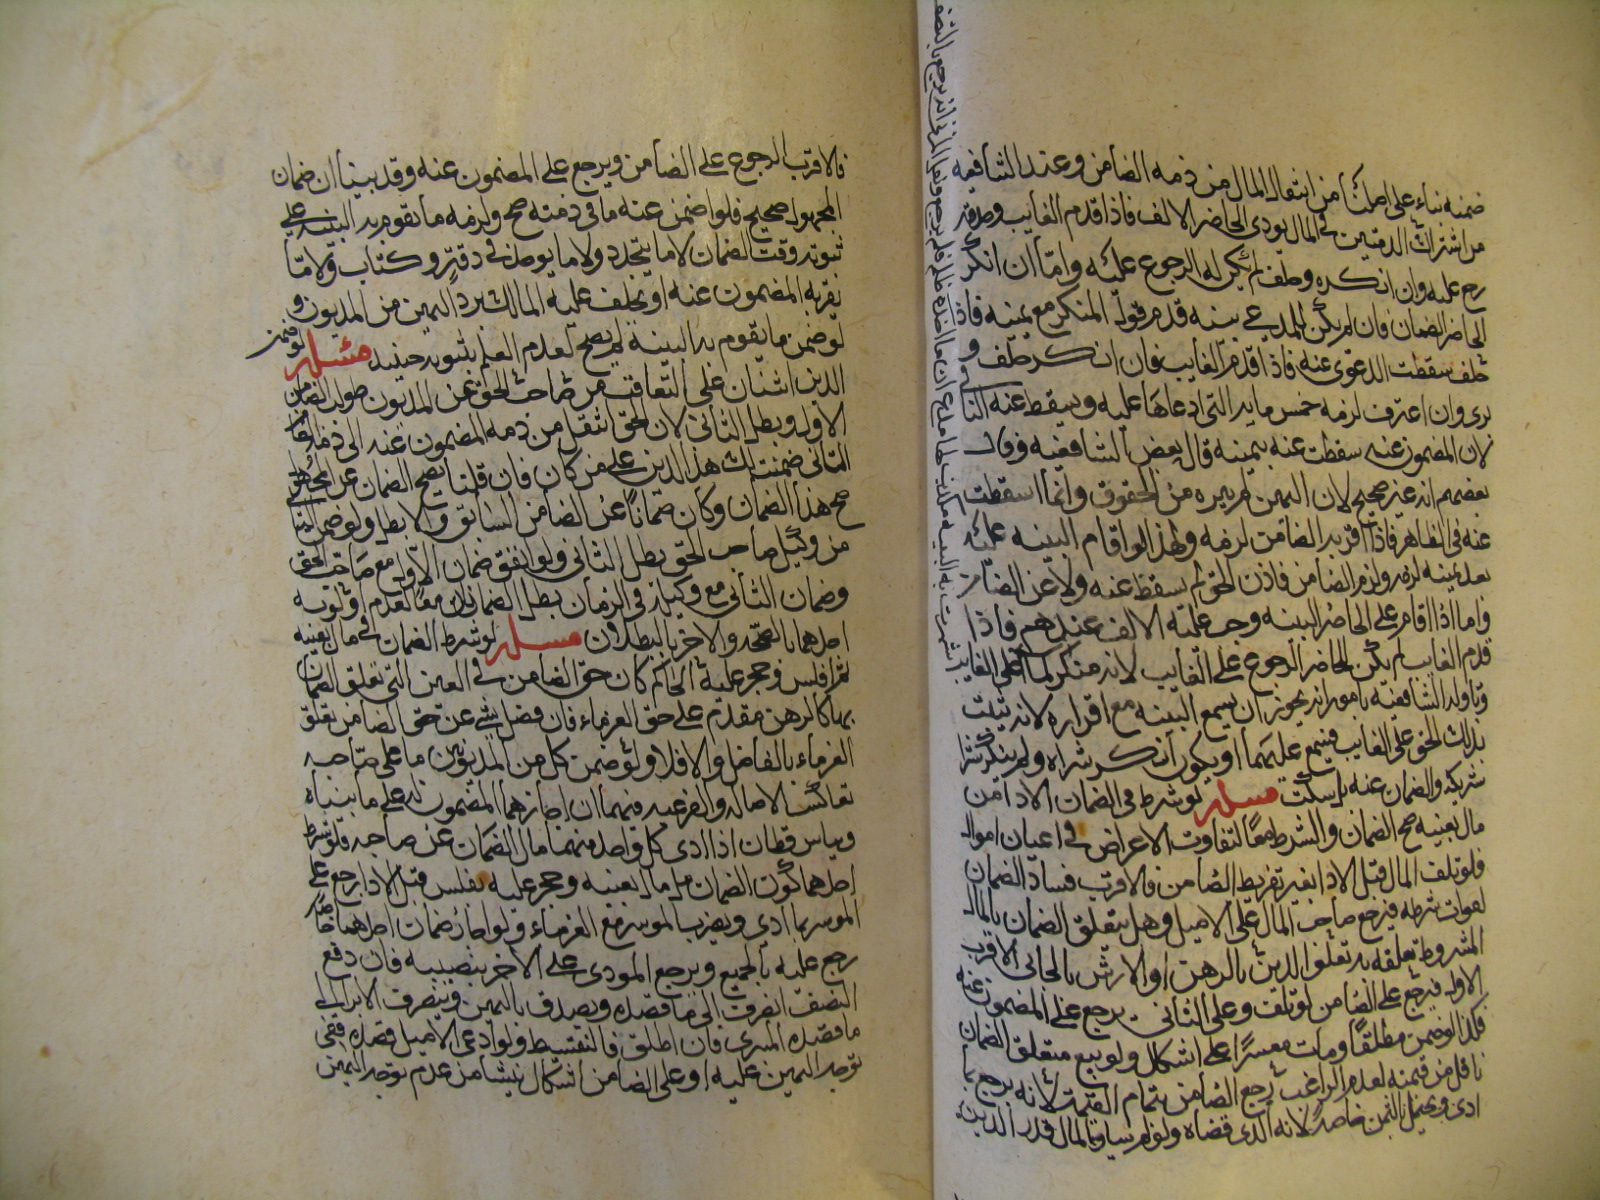 ضمنه بناء على اصلنا من انتقال المال من ذمه الضامن وعند الشافعيه
من اشتراك الذمتين في المال يودى الحاضر الالف فاذا قدم الغايب وصدقه
رجع عليه وان انكره وحلف لم يكن له الرجوع عليه واما ان انكر
الحاضر الضمان فان لم يكن للمدعي بينه قدم قول المنكر مع يمينه فاذا
حلف سقطت الدعوى عنه فاذا قدم الغايب فان انكر حلف و
برى وان اعترف لزمه خمس مايه التي ادعاها عليه ويسقط عنه
لان المضمون عنه سقطت عنه بيمينه قال بعض الشافعيه وقال
بعضهم انه غير صحيح لان اليمين لم يبره من الحقوق وانما اسقطت
عنه في الظاهر فاذا اقر به الضامن لزمه ولهذا لو اقام البينه عليه
بعد يمينه لزمه ولزم الضامن فاذن الحق لم يسقط عنه ولا عن الضامن
واما اذا اقام على الحاضر البينه وجب عليه الالف عندهم فاذا
قدم الغايب لم يكن للحاضر الرجوع على الغايب لانه منكر لما على الغايب
وتاوله الشافعيه بامور انه يجوز ان يسمع البينه مع اقراره لانه يثبت
بذلك الحق على الغايب فيسمع عليهما او يكون انكر شراه ولم ينكر شرا
شريكه والضمان عنه بل سكت مسئله لو شرط في الضمان الادا من
مال بعينه صح الضمان والشرط معا لتفاوت الاغراض في اعيان اموال
فلو تلف المال قبل الادا بغير تفريط الضامن فالاقرب فساد الضمان
لفوات شرطه فيرجع صاحب المال على الاصيل وهل يتعلق الضمان بالمال
المشروط تعلقه به تعلق الدين بالرهن او الارش بالجاني الاقرب
الاول فيرجع على الضامن لو تلف وعلى الثاني يرجع على المضمون عنه
فكذا لو ضمن مطلقا ومات معسرا على اشكال ولو بيع متعلق الضمان
باقل من قيمته لعدم الراغب رجع الضامن بتمام القيمه لانه يرجع بما
ادى ويحتمل بالثمن خاصه لانه الذى قضاه ولو لم يساو المال قدر الدين
فالاقرب الرجوع على الضامن ويرجع على المضمون عنه وقد بينا ان ضمان
المجهول صحيح فلو ضمن عنه ما في ذمته صح ولزمه ما تقوم به البينه على
ثبوته وقت الضمان لا ما يتجدد ولا ما يوجد في دفتر وكتاب ولا ما
يقر به المضمون عنه او يحلف عليه المالك برد اليمين من المديون و
لو ضمن ما يقوم به البينه لم يصح لعدم العلم بثبوته حينئذ مسئله لو ضمن
الدين اثنان على التعاقب من صاحب الحق عن المديون صح الضامن
الاول وبطل الثاني لان الحق انتقل من ذمه المضمون عنه الى ذمه
الثاني ضمنت لك هذا الدين على من كان فان قلنا يصح الضمان عن المجهول
صح هذا الضمان وكان ضمانا عن الضامن السابق والا بطل ولو ضمن الثاني
من وكيل صاحب الحق بطل الثاني ولو اتفق ضمان الاول مع صاحب الحق
وضمان الثاني مع وكيله في الزمان بطل الضمانان معا لعدم اولويه
احدهما بالصحه والاخر بالبطلان مسئله لو شرط الضمان في مال بعينه
ثم افلس وحجر عليه الحاكم كان حق الضامن في العين التي تعلق الضمان
بها كالرهن مقدم على حق الغرماء فان فضل شي عن حق الضامن تعلق
الغرماء بالفاضل والا فلا ولو ضمن كل من المديونين ما على صاحبه
تعاكست الاصاله والفرعيه فيهما ان اجازهما المضمون له على ما بيناه
ويتساقطان اذا ادى كل واحد منهما مال الضمان عن صاحبه فلو شرط
احدهما كون الضمان من مال بعينه وحجر عليه بفلس قبل الادا رجع على
الموسر بما ادى ويضرب الموسر مع الغرماء ولو اجاز ضمان احدهما خاصه
رجع عليه بالجميع ويرجع المودى على الاخر بنصيبه فان دفع
النصف انصرف الى ما قصده ويصدق باليمين وينصرف الابراء الى
ما قصده المبرى فان اطلق فالتقسيط ولو ادعى الاصيل قصده ففي
توجه اليمين عليه او على الضامن اشكال ينشا من عدم توجه اليمين